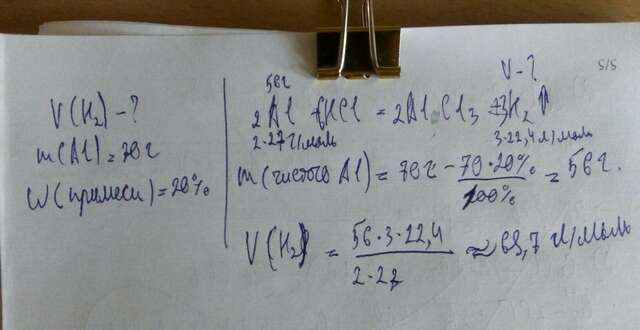 5/5
V(H₂) – ?
m(Al) = 70г
W(примеси) = 20%
V – ?
56г
2Al + 6HCl = 2AlCl₃ + 3H₂↑
2·27 г/моль 3·22,4 л/моль
m(чистого Al) = 70г – 70·20% / 100% = 56г.
V(H₂) = 56·3·22,4 / 2·27 ≈ 69,7 л/моль